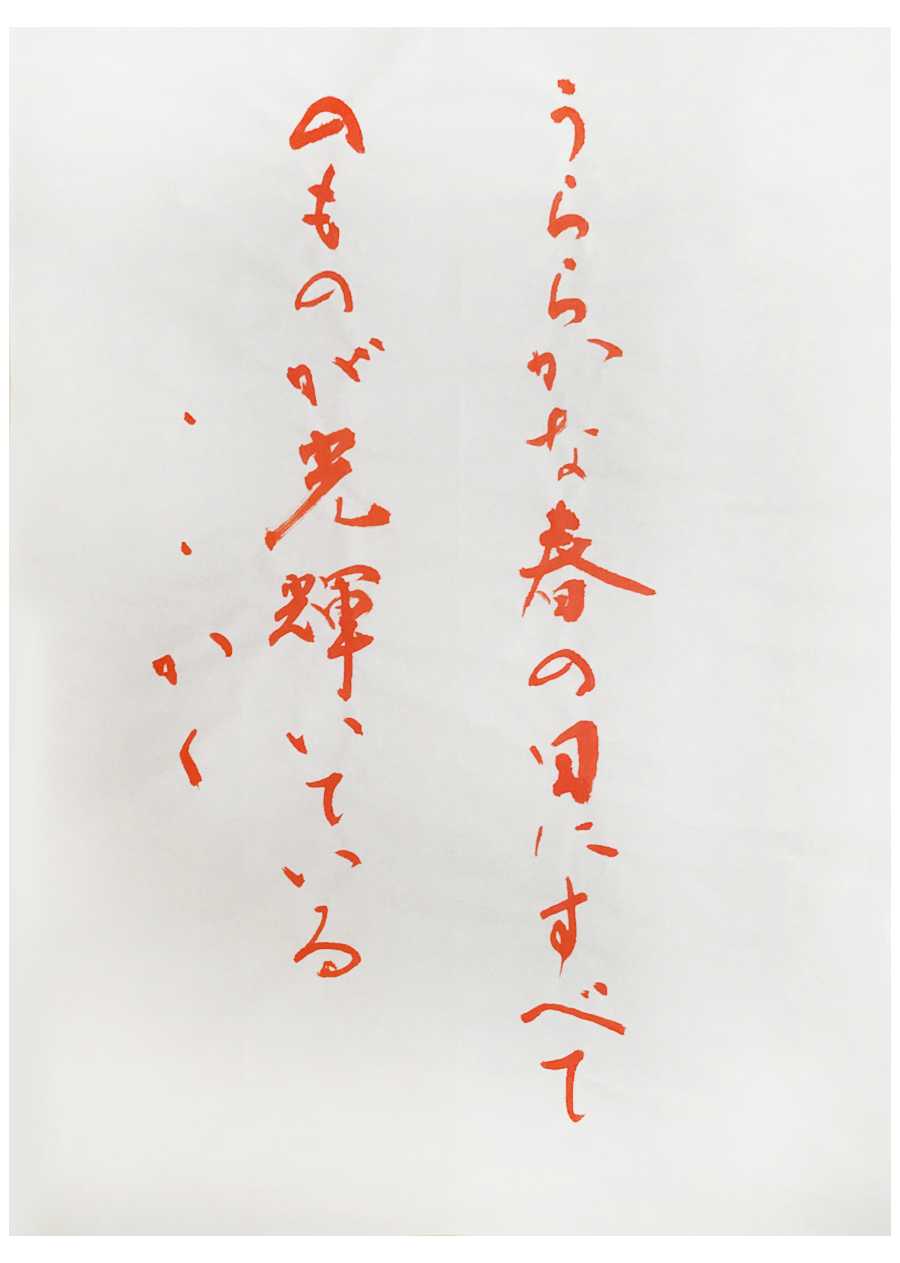 うららかな春の日にすべて
のものが光輝いている
・・かく